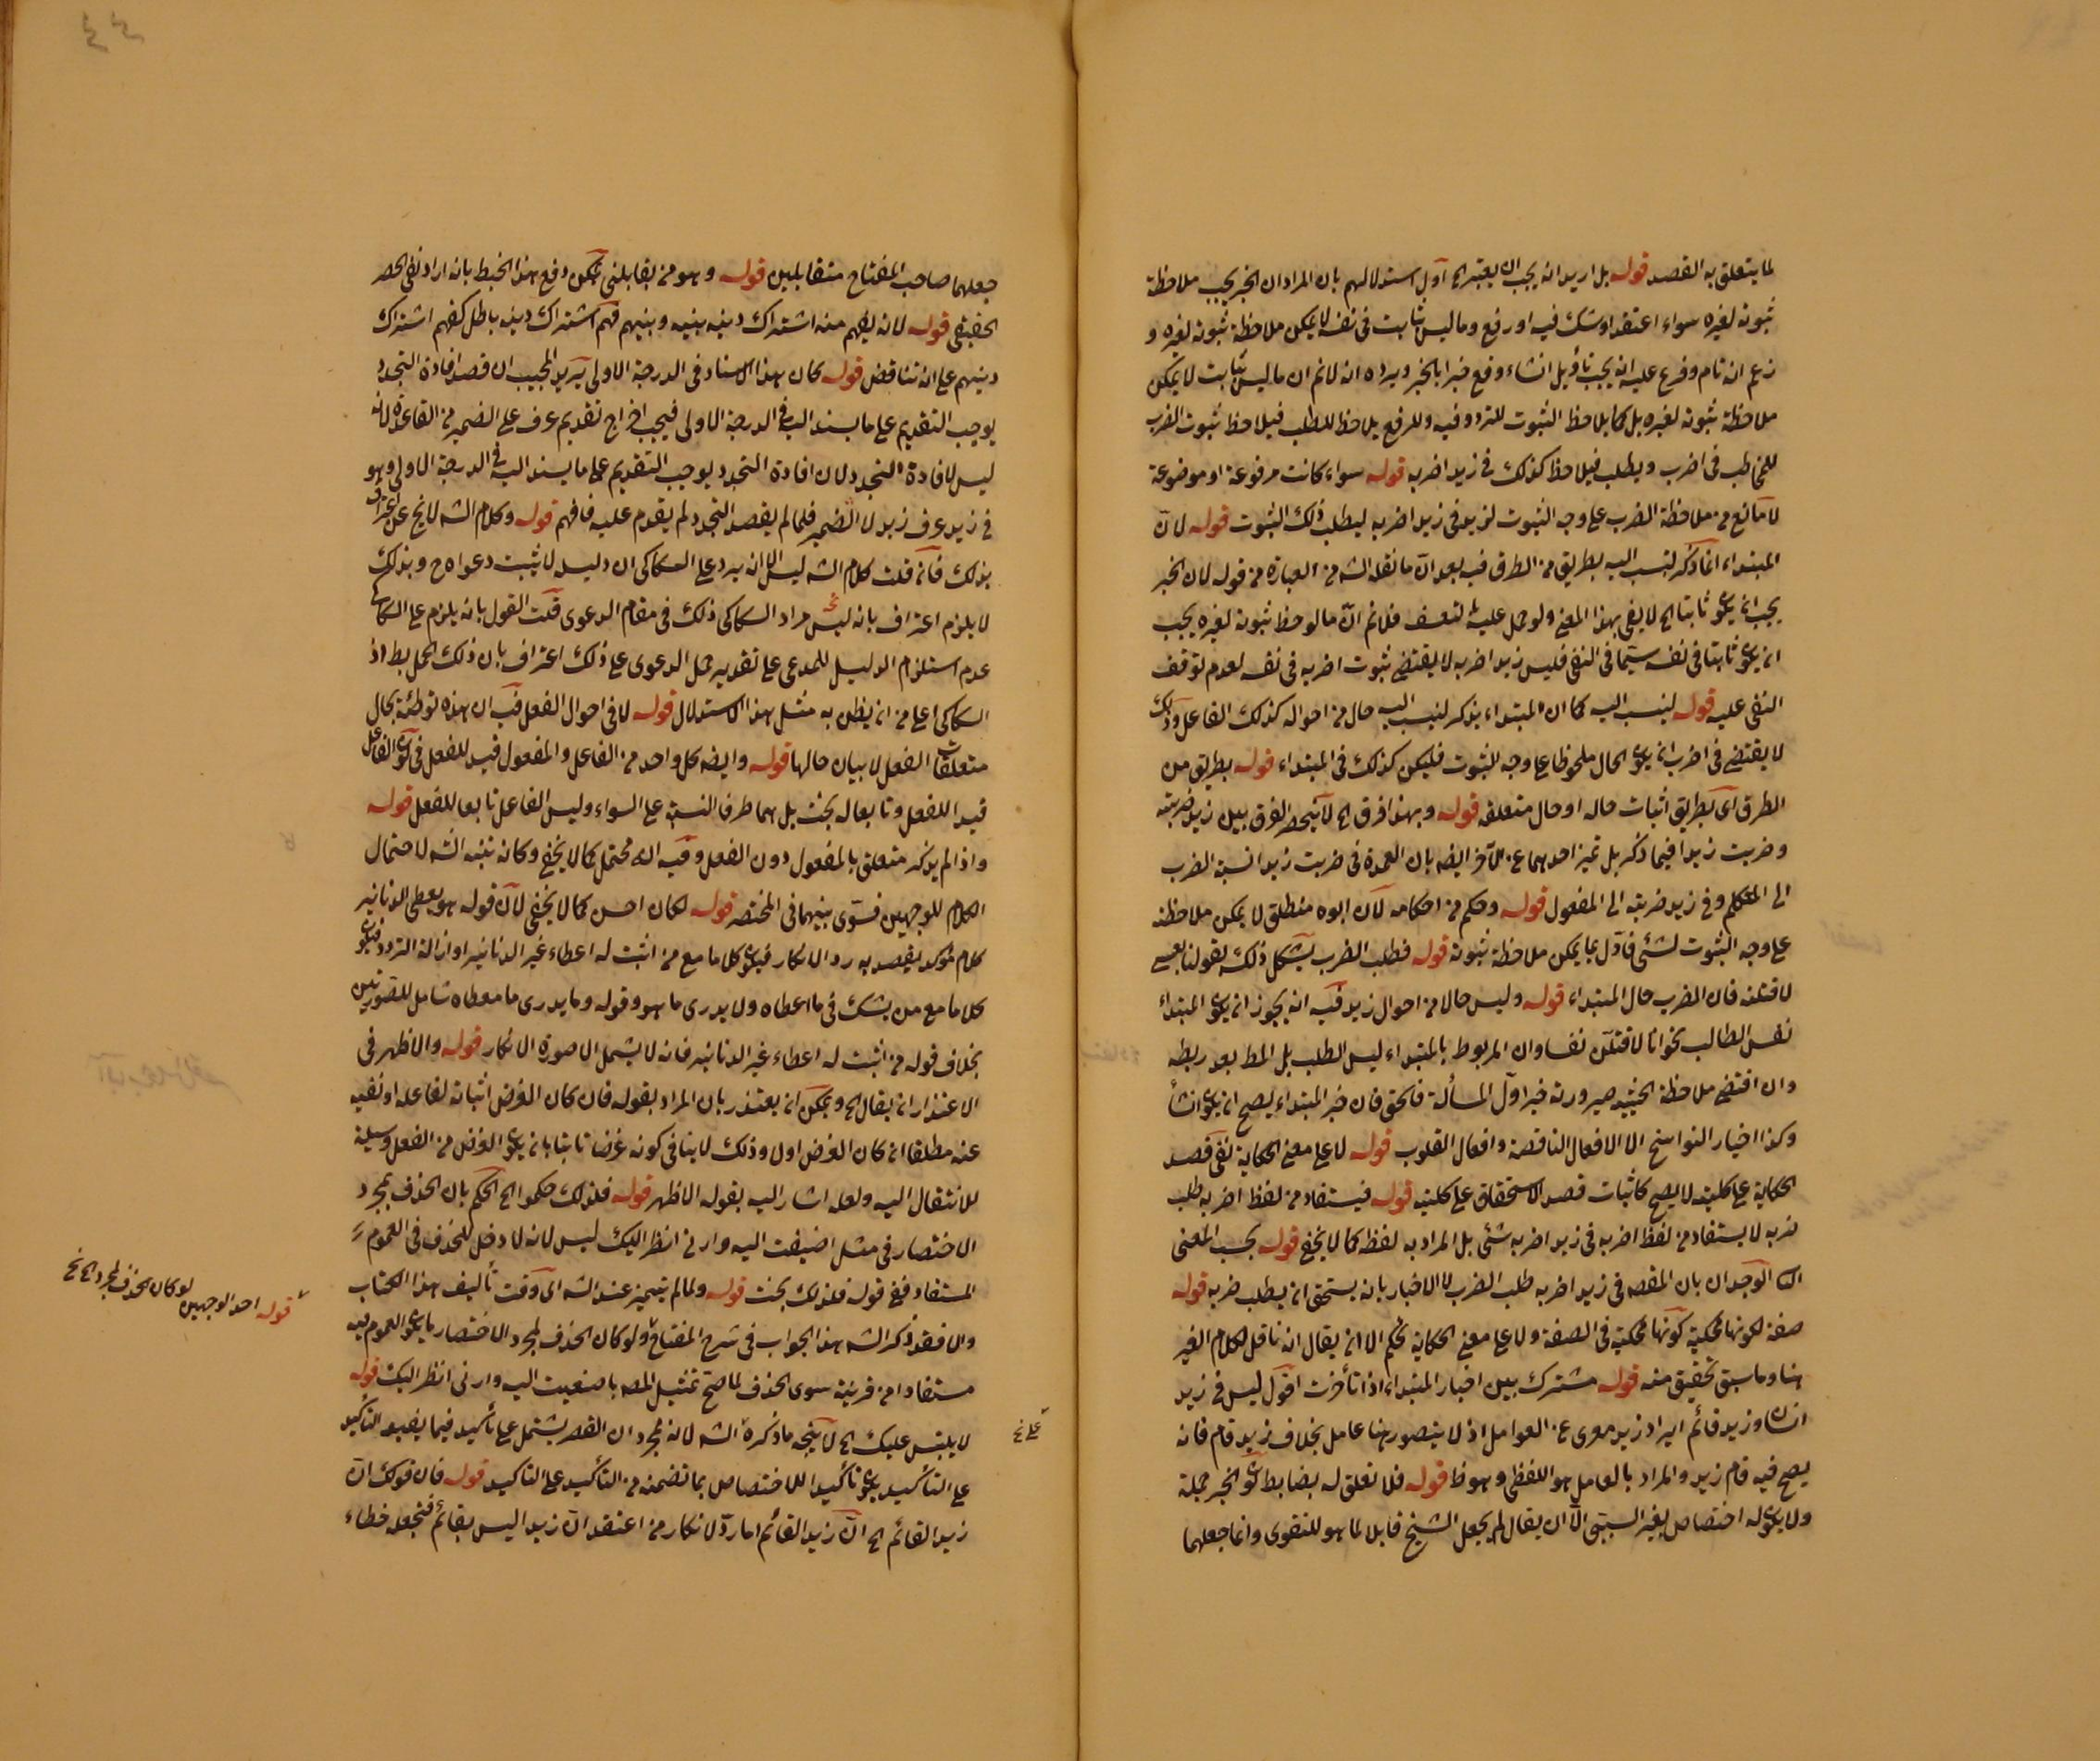 لما يتعلق به القصد قوله بل اريد انه يجب ان يعتبر الخ اول استدلالهم بان المراد ان الخبر يجب ملاحظة
ثبوته لغيره سواء اعتقد او شك فيه او رفع وما ليس بثابت في نفسه لا يمكن ملاحظة ثبوته لغيره و
زعم انه تام وفرع عليه انه يجب تأويل انشاء وقع خبرا بالخبر ويرده انه لانم ان ما ليس بثابت لا يمكن
ملاحظة ثبوته لغيره بل كما يلاحظ الثبوت للتردد فيه وللرفع يلاحظ للطلب فيلاحظ ثبوت الضرب
للمخاطب في اضرب ويطلب فيلاحظ كذلك في زيد اضربه قوله سواء كانت مرفوعة او موضوعة
لا مانع من ملاحظة الضرب على وجه الثبوت لزيد في زيد اضربه ليطلب ذلك الثبوت قوله لان
المبتداء انما ذكر لينسب اليه بطريق من الطرق فيه بعد ان ما نقله الشه من العبارة من قوله لان الخبر
يجب ان يكون ثابتا الخ لا يفي بهذا المعنى ولو حمل عليه لتعسف فلانم ان ما لوحظ ثبوته لغيره يجب
ان يكون ثابتا في نفسه سيما في النفي فليس زيد اضربه لا يقتضي ثبوت اضربه في نفسه لعدم توقف
النفي عليه قوله لينسب اليه كما ان المبتداء يذكر لينسب اليه حال من احواله كذلك الفاعل وذلك
لا يقتضي في اضرب ان يكون الحال ملحوظا على وجه الثبوت فليكن كذلك في المبتداء قوله بطريق من
الطرق اى بطريق اثبات حاله او حال متعلقه قوله وبهذا فرق الخ لا ينحصر الفرق بين زيد ضربته
وضربت زيدا فيما ذكر بل تميز احدهما عن الآخر ايضه بان العمدة في ضربت زيدا نسبة الضرب
الى المتكلم وفي زيد ضربته الى المفعول قوله وحكم من احكامه لان ابوه منطلق لا يمكن ملاحظته
على وجه الثبوت لشئ فاول بما يمكن ملاحظة ثبوته قوله فطلب الضرب يشكل ذلك بقولنا
لاقتلنه فان الضرب حال المبتداء قوله وليس حالا من احوال زيد فيه انه يجوز ان يكون المبتداء
نفس الطالب نحو انا لاقتلن نفسا وان المربوط بالمبتداء ليس الطلب بل المط بعد ربطه
وان اقتضى ملاحظة الحيثية صيرورته خبرا اول المسألة فالحق فان خبر المبتداء يصح ان يكون انشأ
وكذا اخبار النواسخ الا الافعال الناقصة وافعال القلوب قوله لا على معنى الحكاية نفى قصد
الحكاية على كليته لا يصح كاثبات قصد الاستحقاق على كليته قوله فيستفاد من لفظ اضربه طلب
ضربه لا يستفاد من لفظ اضربه في زيد اضربه شئ بل المراد به لفظه كما لا يخفى قوله بحسب المعنى
الوجدان بان المقصه في زيد اضربه طلب الضرب لا الاخبار بانه يستحق ان يطلب ضربه قوله
صفة لكونها محكية كونها محكية في الصفة ولا على معنى الحكاية تحكم الا ان يقال انه ناقل لكلام الغير
هنا وما سبق تحقيق منه قوله مشترك بين اخبار المبتداء اذا تأخرت اقول ليس في زيد
انسان وزيد قائم ايراد زيد معرى عن العوامل اذ لا يتصور هنا عامل بخلاف زيد قام فانه
يصح فيه قام زيد والمراد بالعامل هو اللفظي وهو ظ قوله فلا تعلق له بضابط كون الخبر جملة
ولا يكون له اختصاص بغير السببى الا ان يقال لم يجعل الشيخ قابلا لما هو للتقوى وانما جعلهما
جعلهما صاحب المفتاح متقابلين قوله وهو من بقابلني يمكن دفع هذا الخبط بانه اراد نفى الحصر
الحقيقي قوله لانه يفهم منه اشتراك دينه بينه وبينهم فهم اشتراك دينه باطل كفهم اشتراك
دينهم على انه تناقض قوله كان هذا الاسناد في الدرجة الاولى يريد المجيب ان قصد افادة التجدد
يوجب التقديم على ما يسند اليه في الدرجة الاولى فيجب اخراج تقديم عرف على الضمير من القاعدة لانه
ليس لافادة التجدد لان افادة التجدد يوجب التقديم على ما يسند اليه في الدرجة الاولى وهو
في زيد عرف زيد لا الضمير فلما لم يقصد التجدد لم يقدم عليه فافهم قوله وكلام الشه لا نج عن اعتراف
بذلك فان قلت كلام الشه ليس الا انه يرد على السكاكى ان دليله لا يثبت دعواه ح وبذلك
لا يلزم اعتراف بانه ليس مراد السكاكى ذلك في مقام الدعوى قلت القول بانه يلزم على السكاكى
عدم استلزام الدليل للمدعى على تقدير حمل الدعوى على ذلك اعتراف بان ذلك الحمل بط اذ
السكاكى اعلى من ان يظن به مثل هذا الاستدلال قوله لا في احوال الفعل فيه ان هذه توطئة بحال
متعلقات الفعل لا بيان حالها قوله وايضه كل واحد من الفاعل والمفعول قيد للفعل في كون الفاعل
قيد اللفعل وتابعا له بحث بل هما طرف النسبة على السواء وليس الفاعل تابعا للفعل قوله
واذا لم يذكر متعلق بالمفعول دون الفعل وفيه انه محتمل كما لا يخفى وكانه تنبه الشه لاحتمال
الكلام للوجهين فسوى بينهما في المختصر قوله لكان احسن كما لا يخفى لان قوله هو يعطى الدنانير
كلام مؤكد يقصد به رد الانكار فيكون كلاما مع من اثبت له اعطاء غير الدنانير او ازالة التردد فيكون
كلاما مع من يشك في ما اعطاه ولا يدرى ما هو وقوله وما يدرى ما معطاه شامل للصورتين
بخلاف قوله من اثبت له اعطاء غير الدنانير فانه لا يشمل الا صورة الانكار قوله والاظهر في
الاعتذار ان يقال الخ ويمكن ان يعتذر بان المراد بقوله فان كان الغرض اثباته لفاعله او نفيه
عنه مطلقا ان كان الغرض اولا وذلك لا ينافى كونه غرضا ثابتا بان يكون الغرض من الفعل وسيلة
للانتقال اليه ولعله اشار اليه بقوله الاظهر قوله فلذلك حكموا الخ الحكم بان الحذف لمجرد
الاختصار في مثل اضيفت اليه وارنى انظر اليك ليس لانه لا دخل للحذف في العموم
المستفاد ففى قوله فلذلك بحث قوله ولما لم يتميز عند الشه الى وقت تأليف هذا الكتاب
والا فقد ذكر الشه هذا الجواب في شرح المفتاح ولو كان الحذف لمجرد الاختصار ما يكون العموم فيه
مستفادا من قرينة سوى الحذف لما صح تمثيل المصه باصغيت اليه وارنى انظر اليك قوله
لا يلتبس عليك الخ لا يتجه ما ذكره الشه لانه مجرد ان القصر يشتمل على تأكيد فيما يفيد التأكيد
على التأكيد يكون تأكيدا للاختصاص بما تضمنه من التأكيد على التأكيد قوله فان قولك ان
زيدا القائم الخ ان زيدا القائم اما رد لانكار من اعتقد ان زيدا ليس بقائم فتجعله خطاء
قوله احد الوجهين لو كان الحذف لمجرد الخ نخ